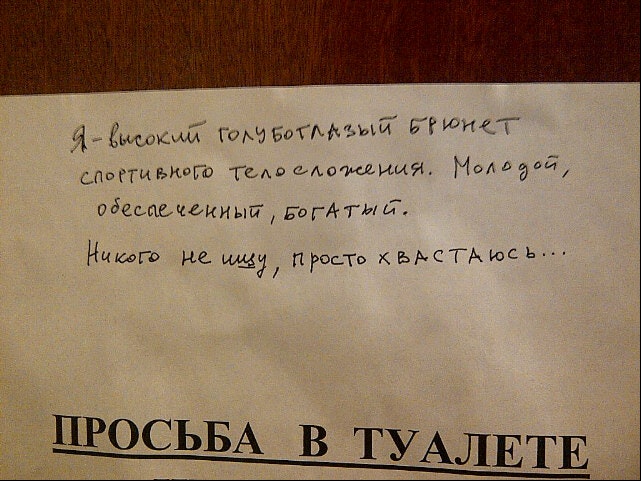 Я - высокий голубоглазый брюнет
спортивного телосложения. Молодой,
обеспеченный, богатый.
Никого не ищу, просто хвастаюсь...
ПРОСЬБА В ТУАЛЕТЕ